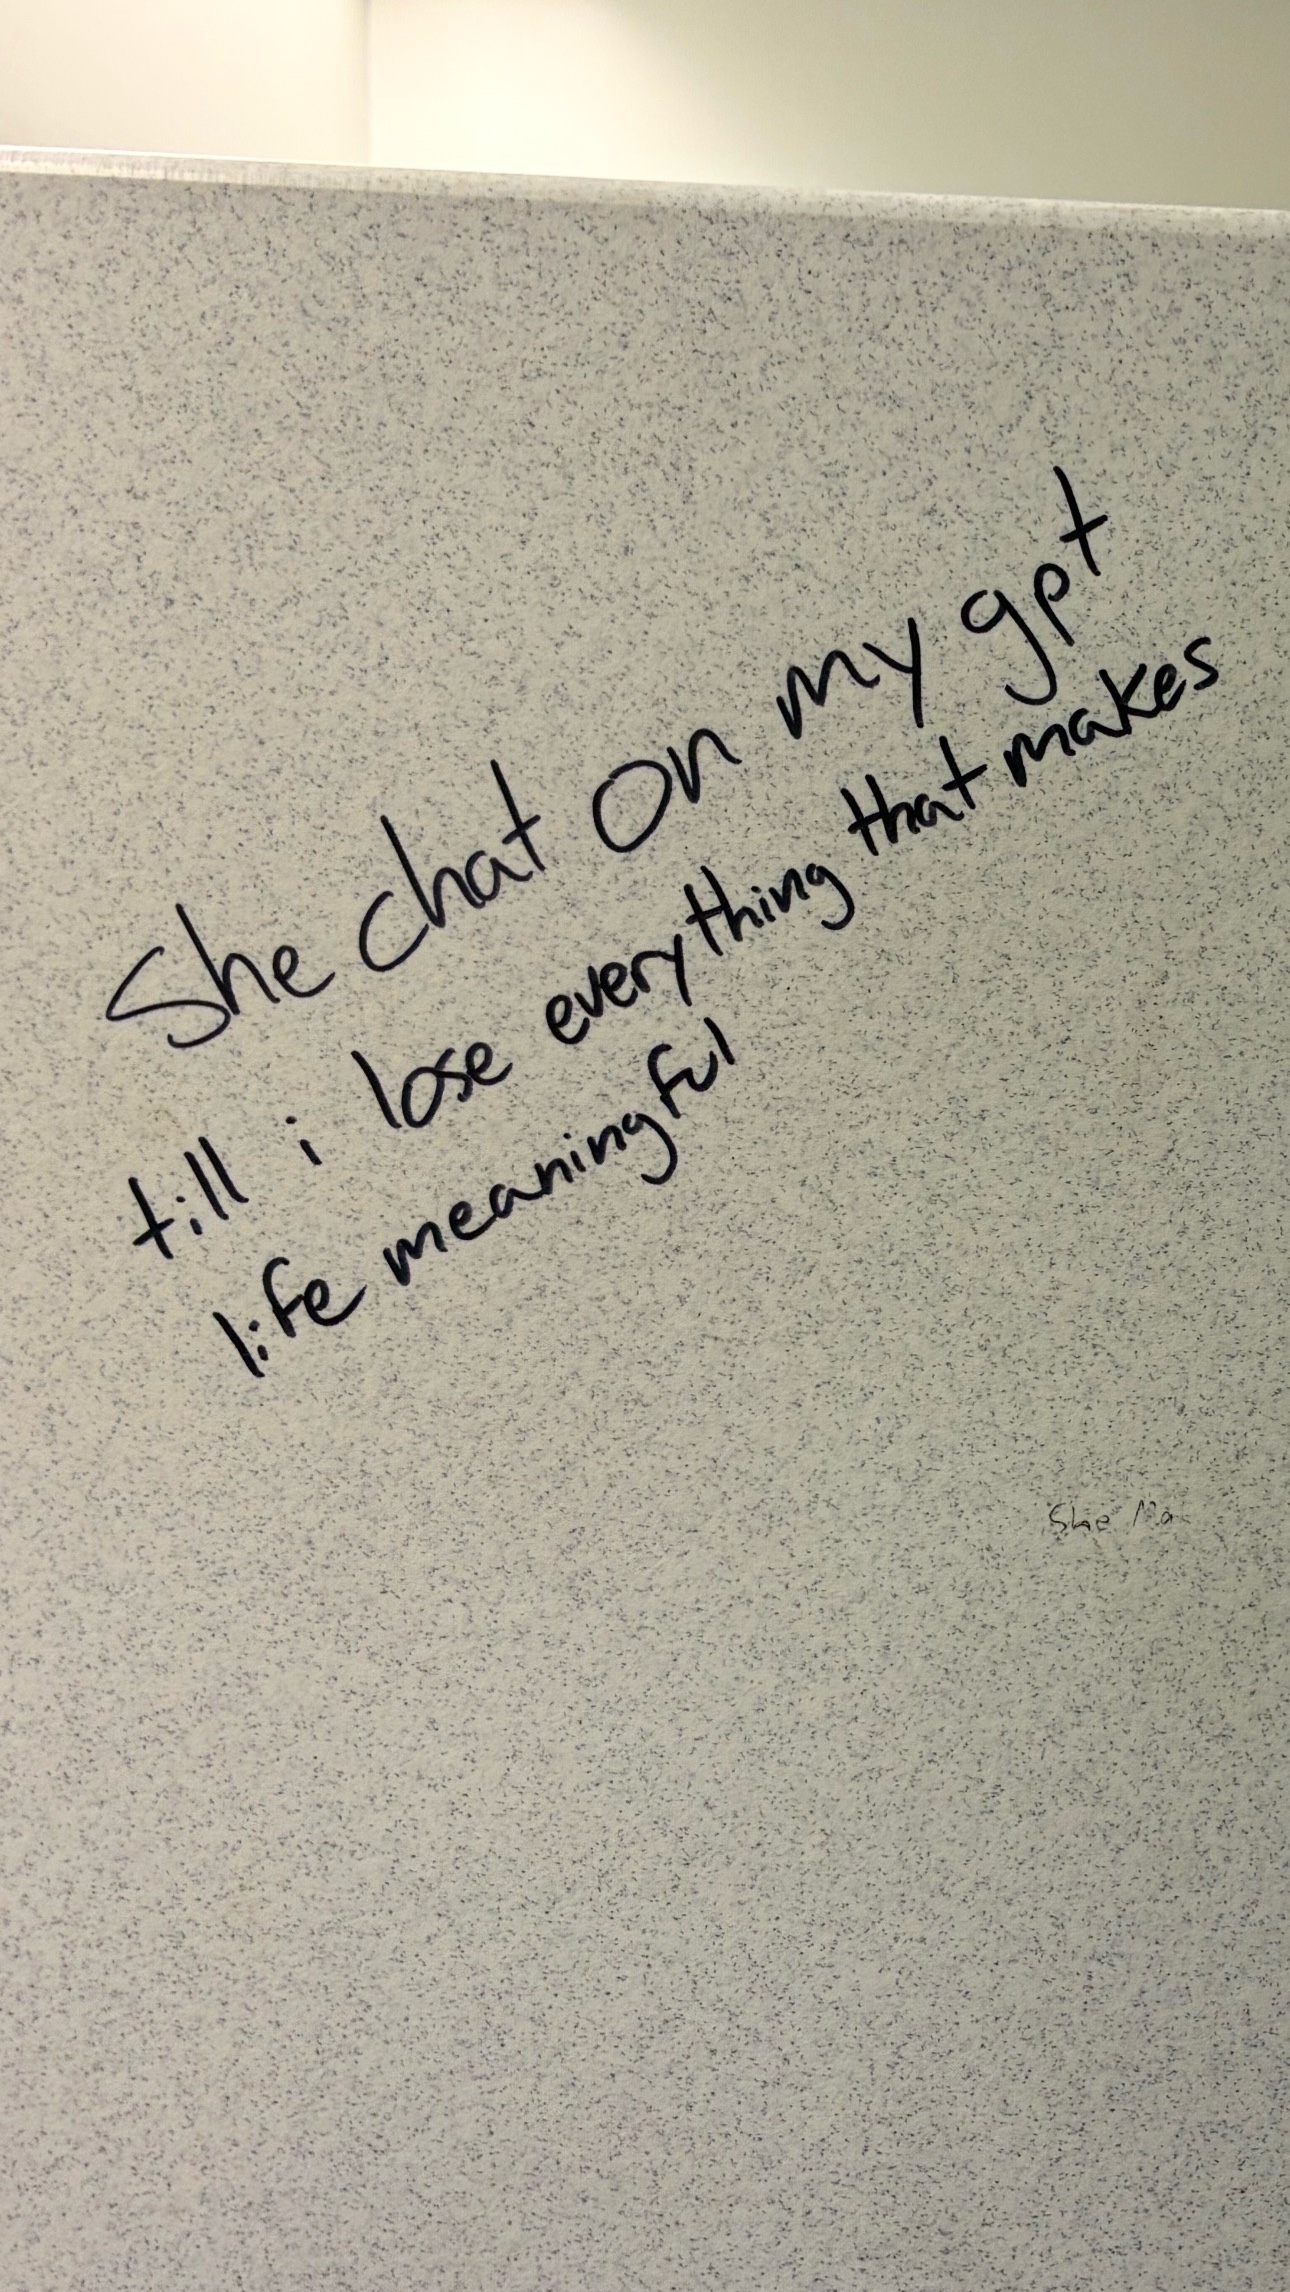 She chat on my gpt
till i lose everything that makes
life meaningful
She